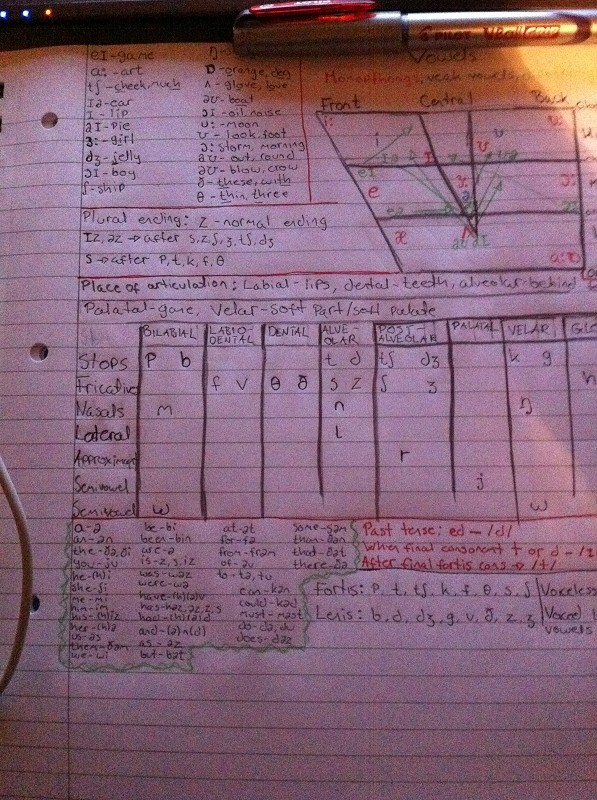 PILOT VBall
eI-game
a:-art
D-orange, dog
tʃ-cheek, much
ʌ-glove, love
Iə-ear
əʊ-boat
I-lip
ɔI-oil, noise
aI-pie
u:-moon
ɜ:-girl
ʊ-look, foot
dʒ-jelly
ɔ:-storm, morning
ɔI-boy
aʊ-out, round
ʃ-ship
əʊ-blow, crow
ð-these, with
θ-thin, three
Vowels
Monopthongs, weak vowels,
Front Central Back
Plural ending: Z-normal ending
IZ, əz → after s, z, ʃ, ʒ, tʃ, dʒ
S → after P, t, k, f, θ
Place of articulation: Labial-lips, dental-teeth, alveolar-behind
Palatal-gone, Velar-soft Part/soft palate
BILABIAL LABIO-DENTAL DENTAL ALVE-OLAR POST-ALVEOLAR PALATAL VELAR
Stops P b t d tʃ dʒ k g
Fricatives f v θ ð s z ʃ ʒ h
Nasals m n ŋ
Lateral l
Approximant r
Semivowel j
Semivowel w w
a-ə be-bi at-ət some-səm
an-ən been-bin for-fə than-ðən
the-ðə, ði are-ə from-frəm that-ðət
you-ju is-z, s, iz of-əv there-ðə
he-(h)i was-wəz to-tə, tu
she-ʃi were-wə can-kən
me-mi have-(h)əv could-kəd
him-im has-həz, əz, z, s must-məst
his-(h)iz had-(h)(ə)d do-də, du
her-(h)ə and-(ə)n(d) does-dəz
us-əs as-əz
them-ðəm but-bət
we-wi
Past tense: ed-/d/
When final consonant t or d-/
After final fortis cons → /t/
Fortis: P, t, tʃ, k, f, θ, s, ʃ Voiceless
Lenis: b, d, dʒ, g, v, ð, z, ʒ Voiced
vowels